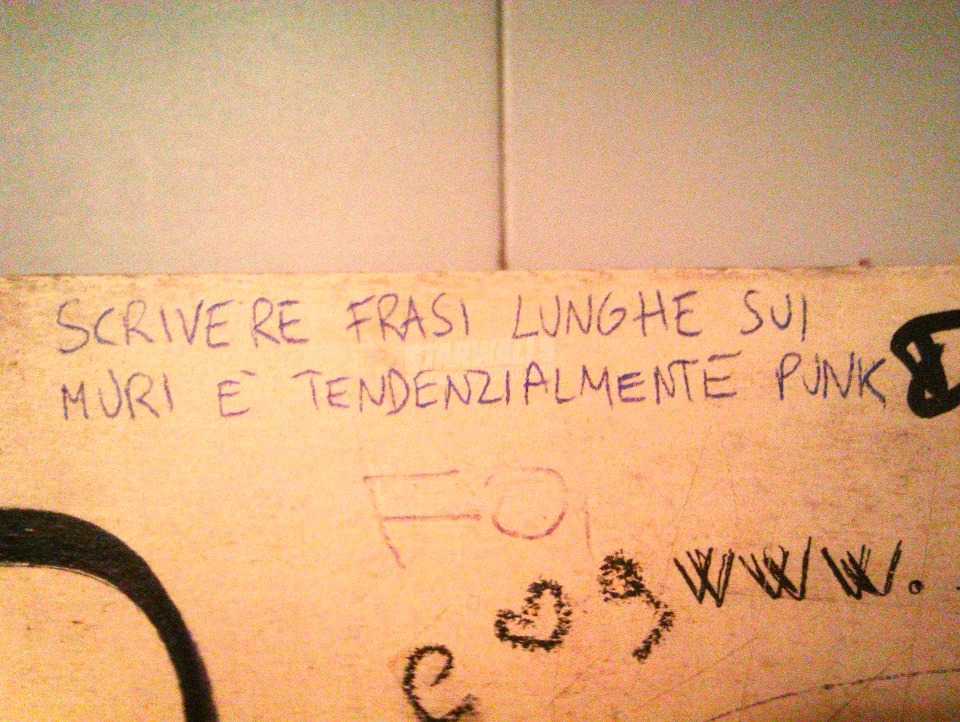 SCRIVERE FRASI LUNGHE SUI
MURI E' TENDENZIALMENTE PUNK
FO
www.